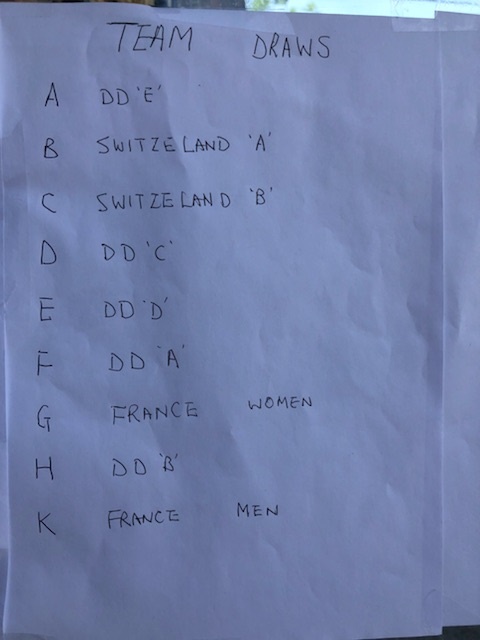 TEAM DRAWS
A DD 'E'
B SWITZELAND 'A'
C SWITZELAND 'B'
D DD 'C'
E DD 'D'
F DD 'A'
G FRANCE WOMEN
H DD 'B'
K FRANCE MEN